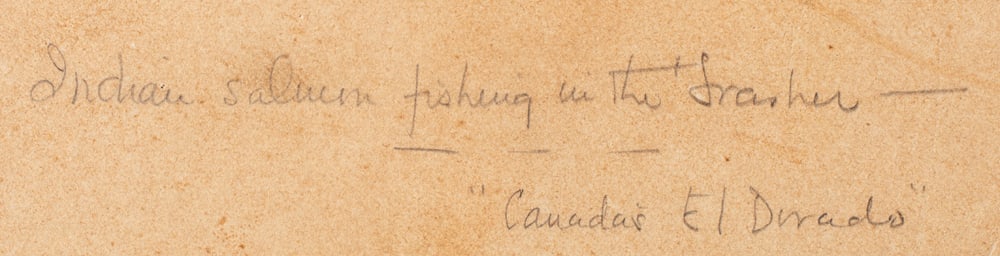 Indian salmon fishing in the Frasher —
"Canada's El Dorado"